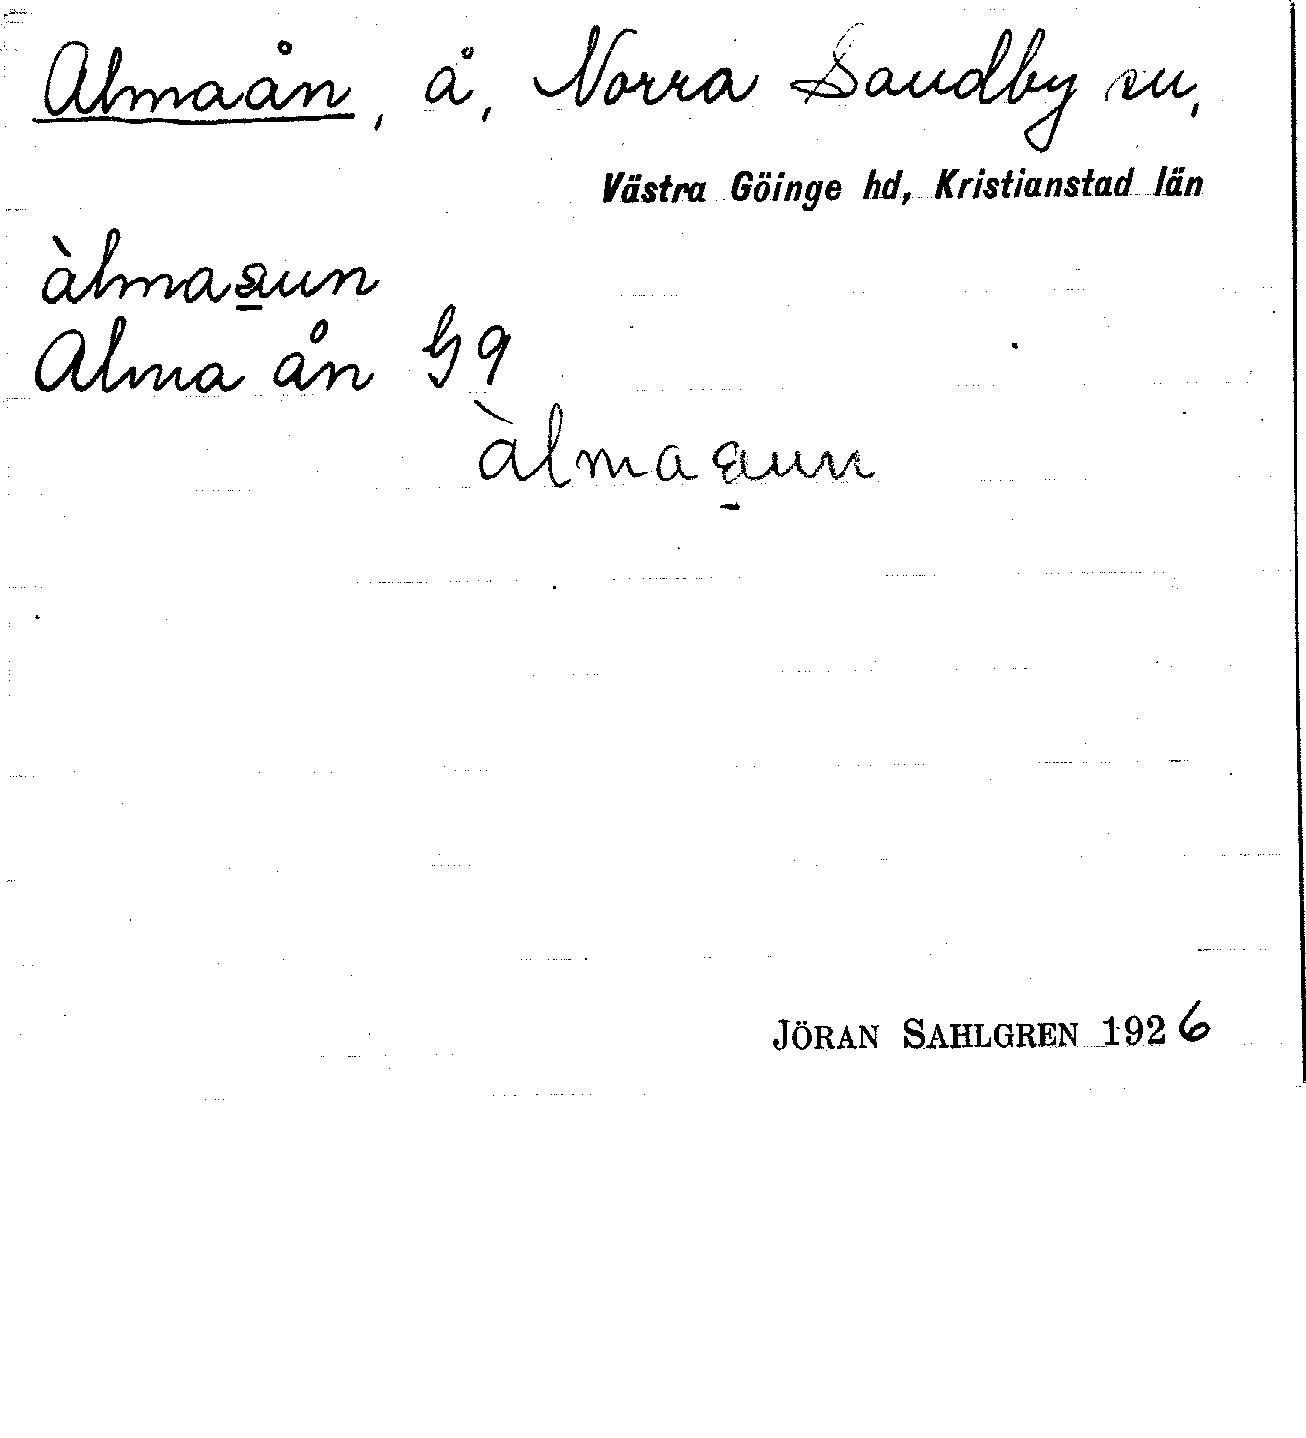 Almaån, å, Norra Sandby sn,
Västra Göinge hd, Kristianstad län
àlmaa̱un
Alma ån G9
àlmaa̱un
JÖRAN SAHLGREN 1926